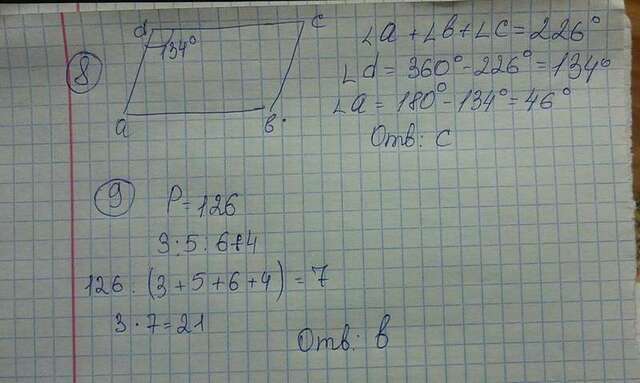 8
d c
134°
a b.
∠a + ∠b + ∠c = 226°
∠d = 360° - 226° = 134°
∠a = 180° - 134° = 46°
Отв: c
9 P = 126
3 : 5 : 6 : 4
126 : (3 + 5 + 6 + 4) = 7
3 · 7 = 21
Отв: в